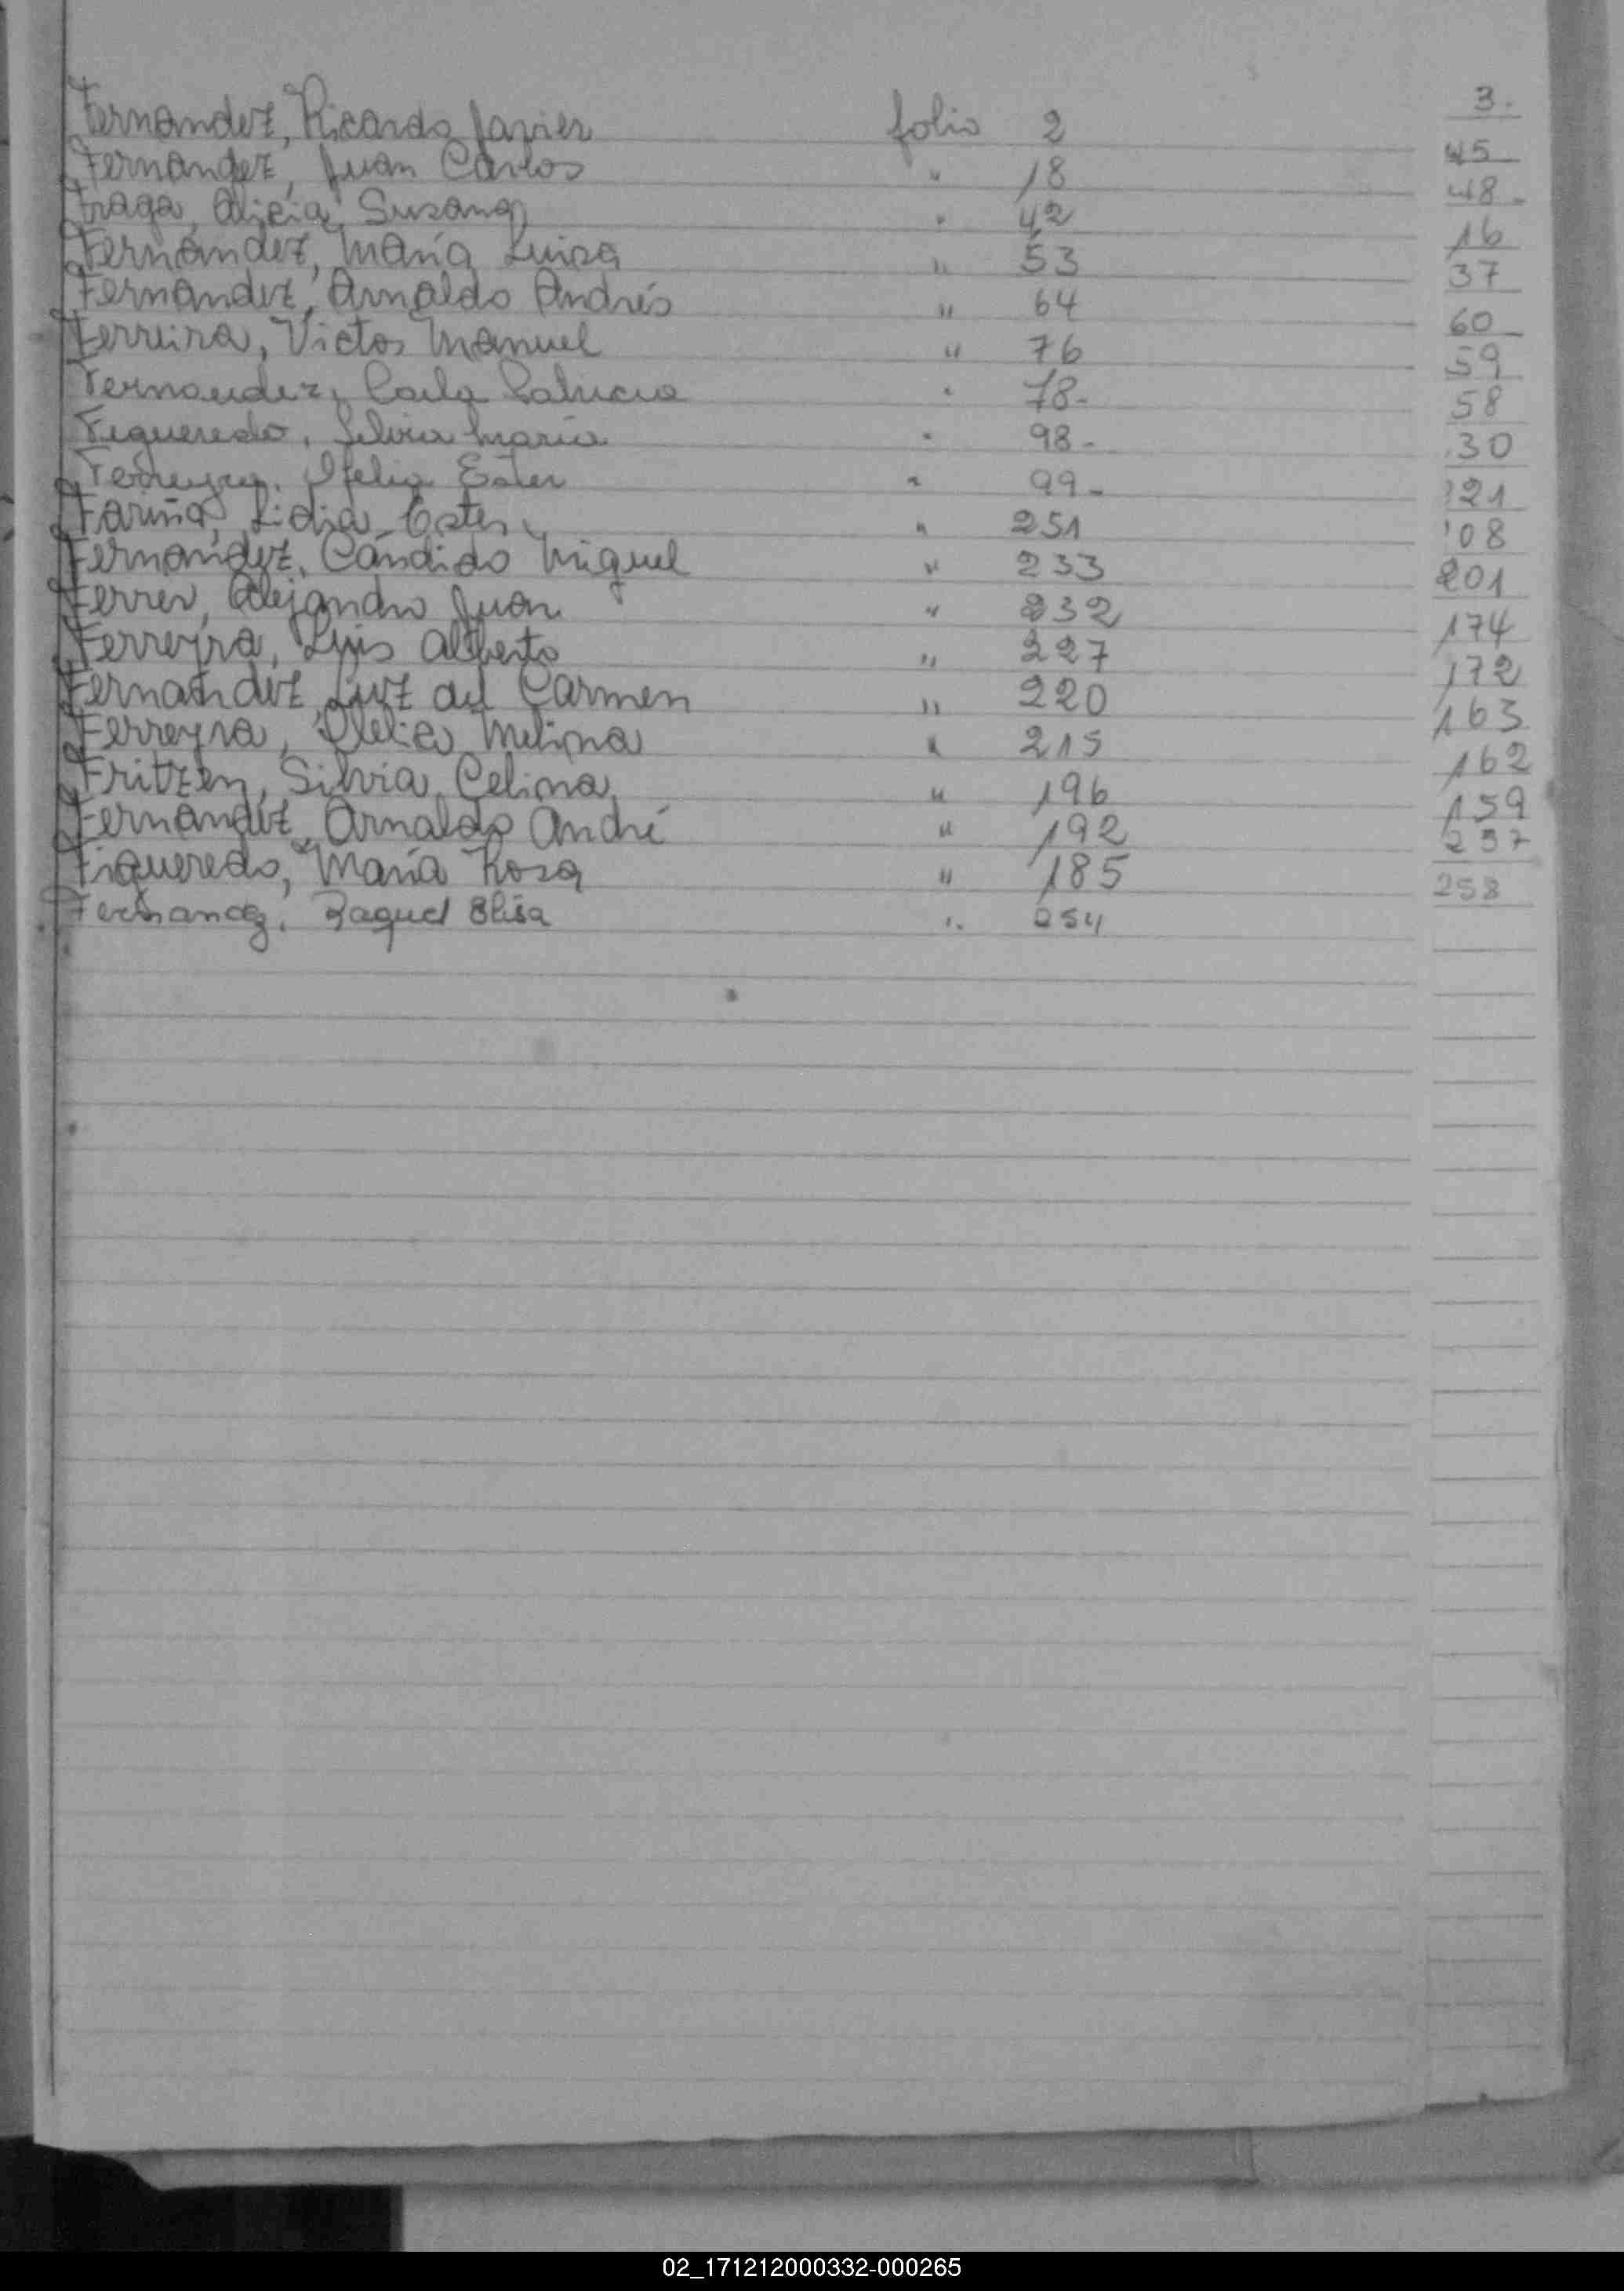 Fernandez, Ricardo Javier folio 2
Fernandez, Juan Carlos " 18
Fraga, Alicia Susana " 42
Fernández, María Luisa " 53
Fernandez, Arnaldo Andrés " 64
Ferreira, Victor Manuel " 76
Fernandez, Carla Patricia " 78-
Figueredo, Silvia María " 98-
Ferreyra, Ofelia Ester " 99-
Fariña, Lidia Ester " 251
Fernandez, Cándido Miguel " 233
Ferrer, Alejandro Juan " 232
Ferreyra, Luis Alberto " 227
Fernandez, Luz del Carmen " 220
Ferreyra, Melina " 215
Fritzen, Silvia Celina " 196
Fernandez, Arnaldo André " 192
Figueredo, María Rosa " 185
Fernandez, Raquel Elisa " 254
3.
45
48-
16
37
60
59
58
30
121
108
201
174
172
163
162
159
257
258
02_171212000332-000265